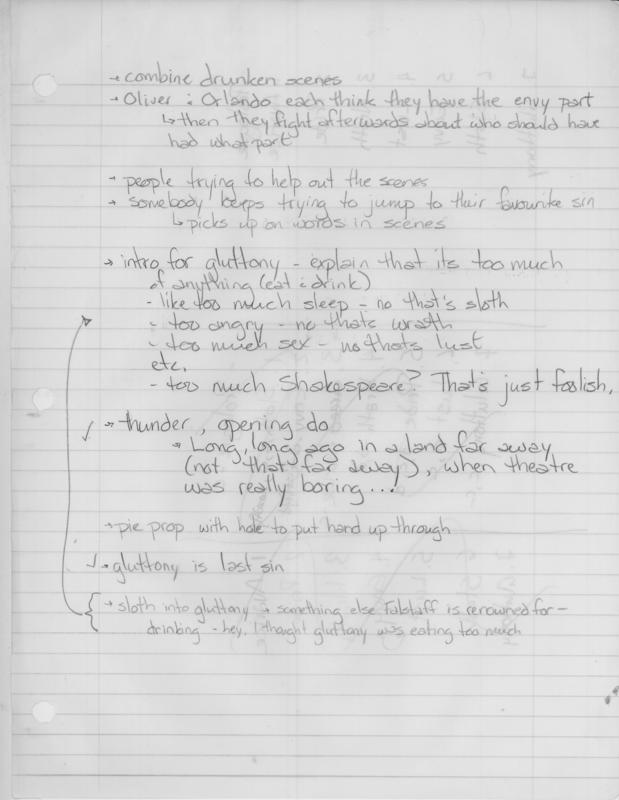 → combine drunken scenes
→ Oliver & Orlando each think they have the envy part
↳ then they fight afterwards about who should have
had what part
→ people trying to help out the scenes
→ somebody keeps trying to jump to their favourite sin
↳ picks up on words in scenes
→ intro for gluttony - explain that its too much
of anything (eat & drink)
- like too much sleep - no that's sloth
- too angry - no thats wrath
- too much sex - no thats lust
etc.
- too much Shakespeare? That's just foolish.
✓ → thunder, opening do
→ Long, long ago in a land far away
(not that far away), when theatre
was really boring...!
→ pie prop with hole to put hand up through
✓ → gluttony is last sin
→ sloth into gluttony → something else Falstaff is renowned for -
drinking - hey, I thought gluttony was eating too much